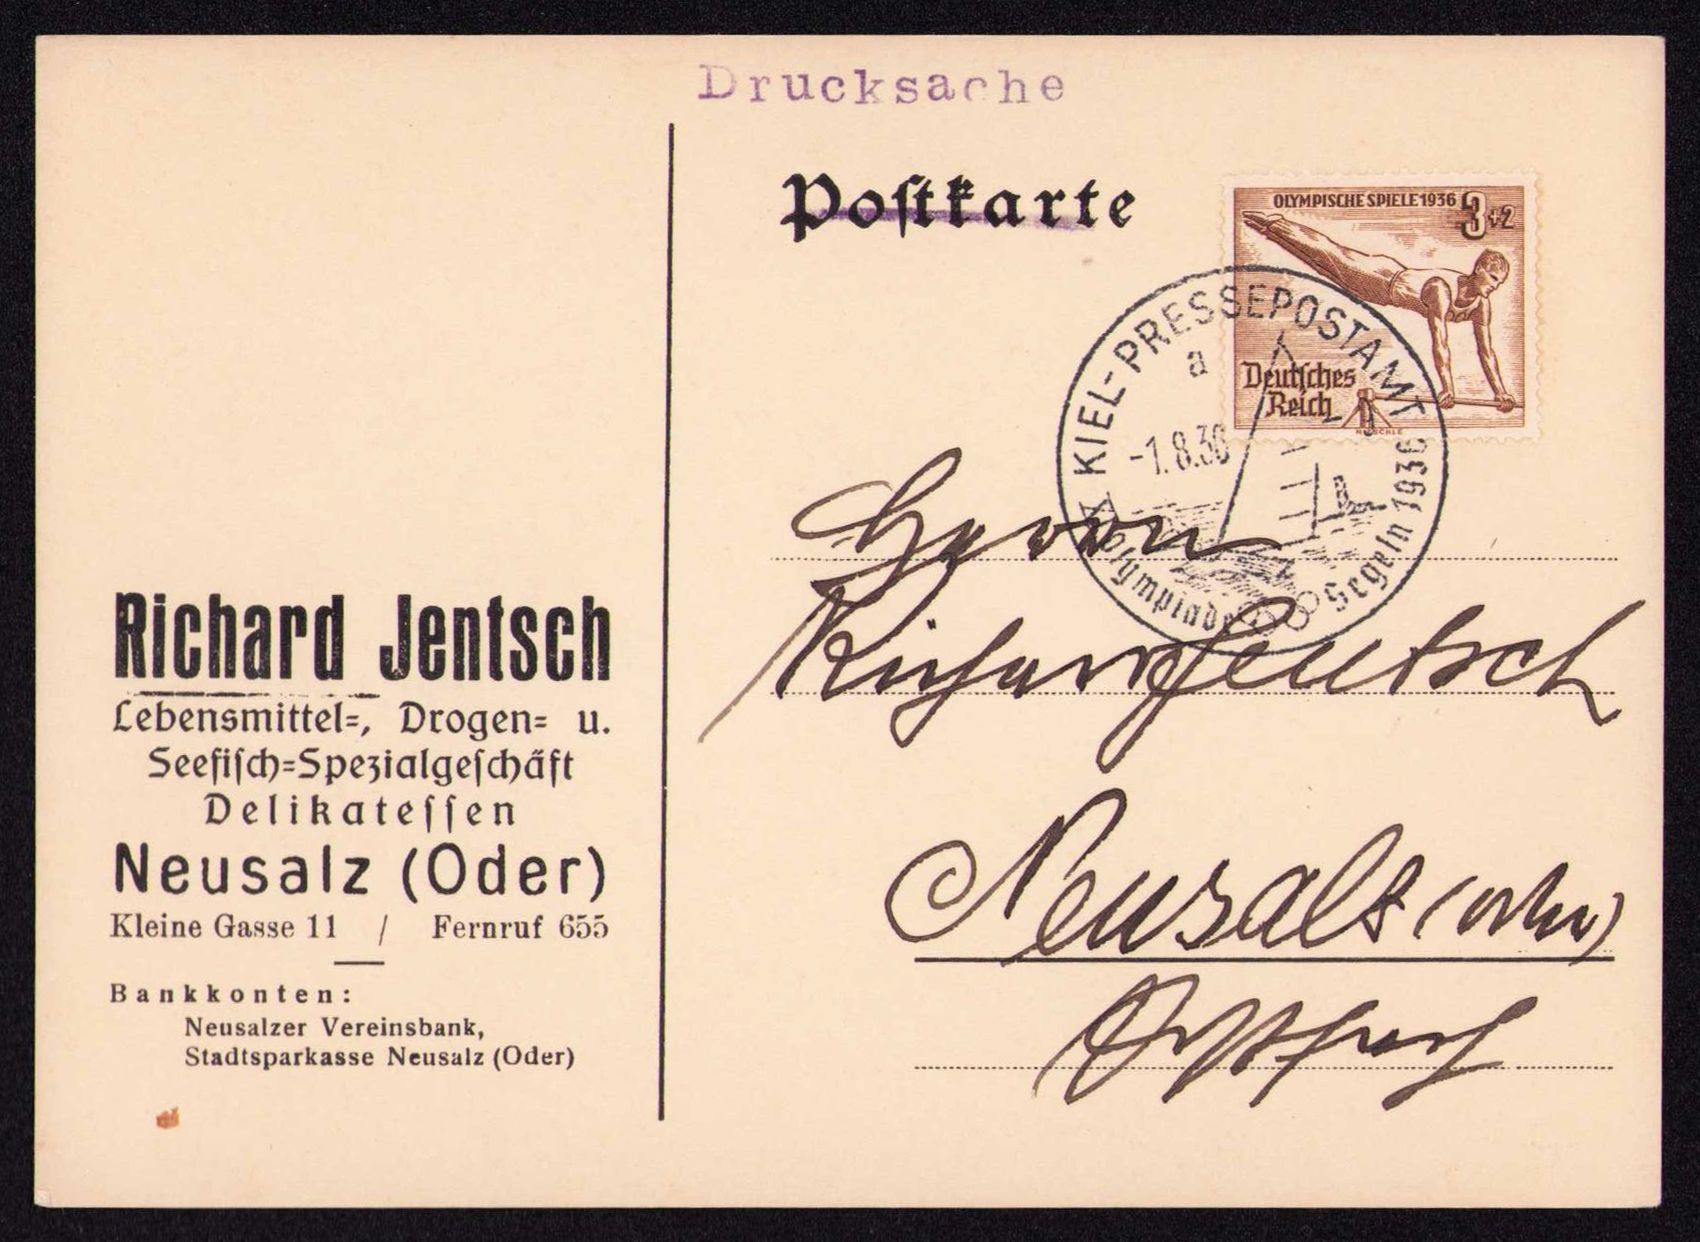 Drucksache
Poſtkarte
OLYMPISCHE SPIELE 1936 3+2
Deutſches
Reich
KIEL-PRESSEPOSTAMT
a
-1.8.36
Olympiade Segeln 1936
Herrn
Richard Jentsch
Neusalz (Oder)
Richard Jentsch
Lebensmittel=, Drogen= u.
Seefiſch=Spezialgeſchäft
Delikateſſen
Neusalz (Oder)
Kleine Gasse 11 / Fernruf 655
Bankkonten:
Neusalzer Vereinsbank,
Stadtsparkasse Neusalz (Oder)